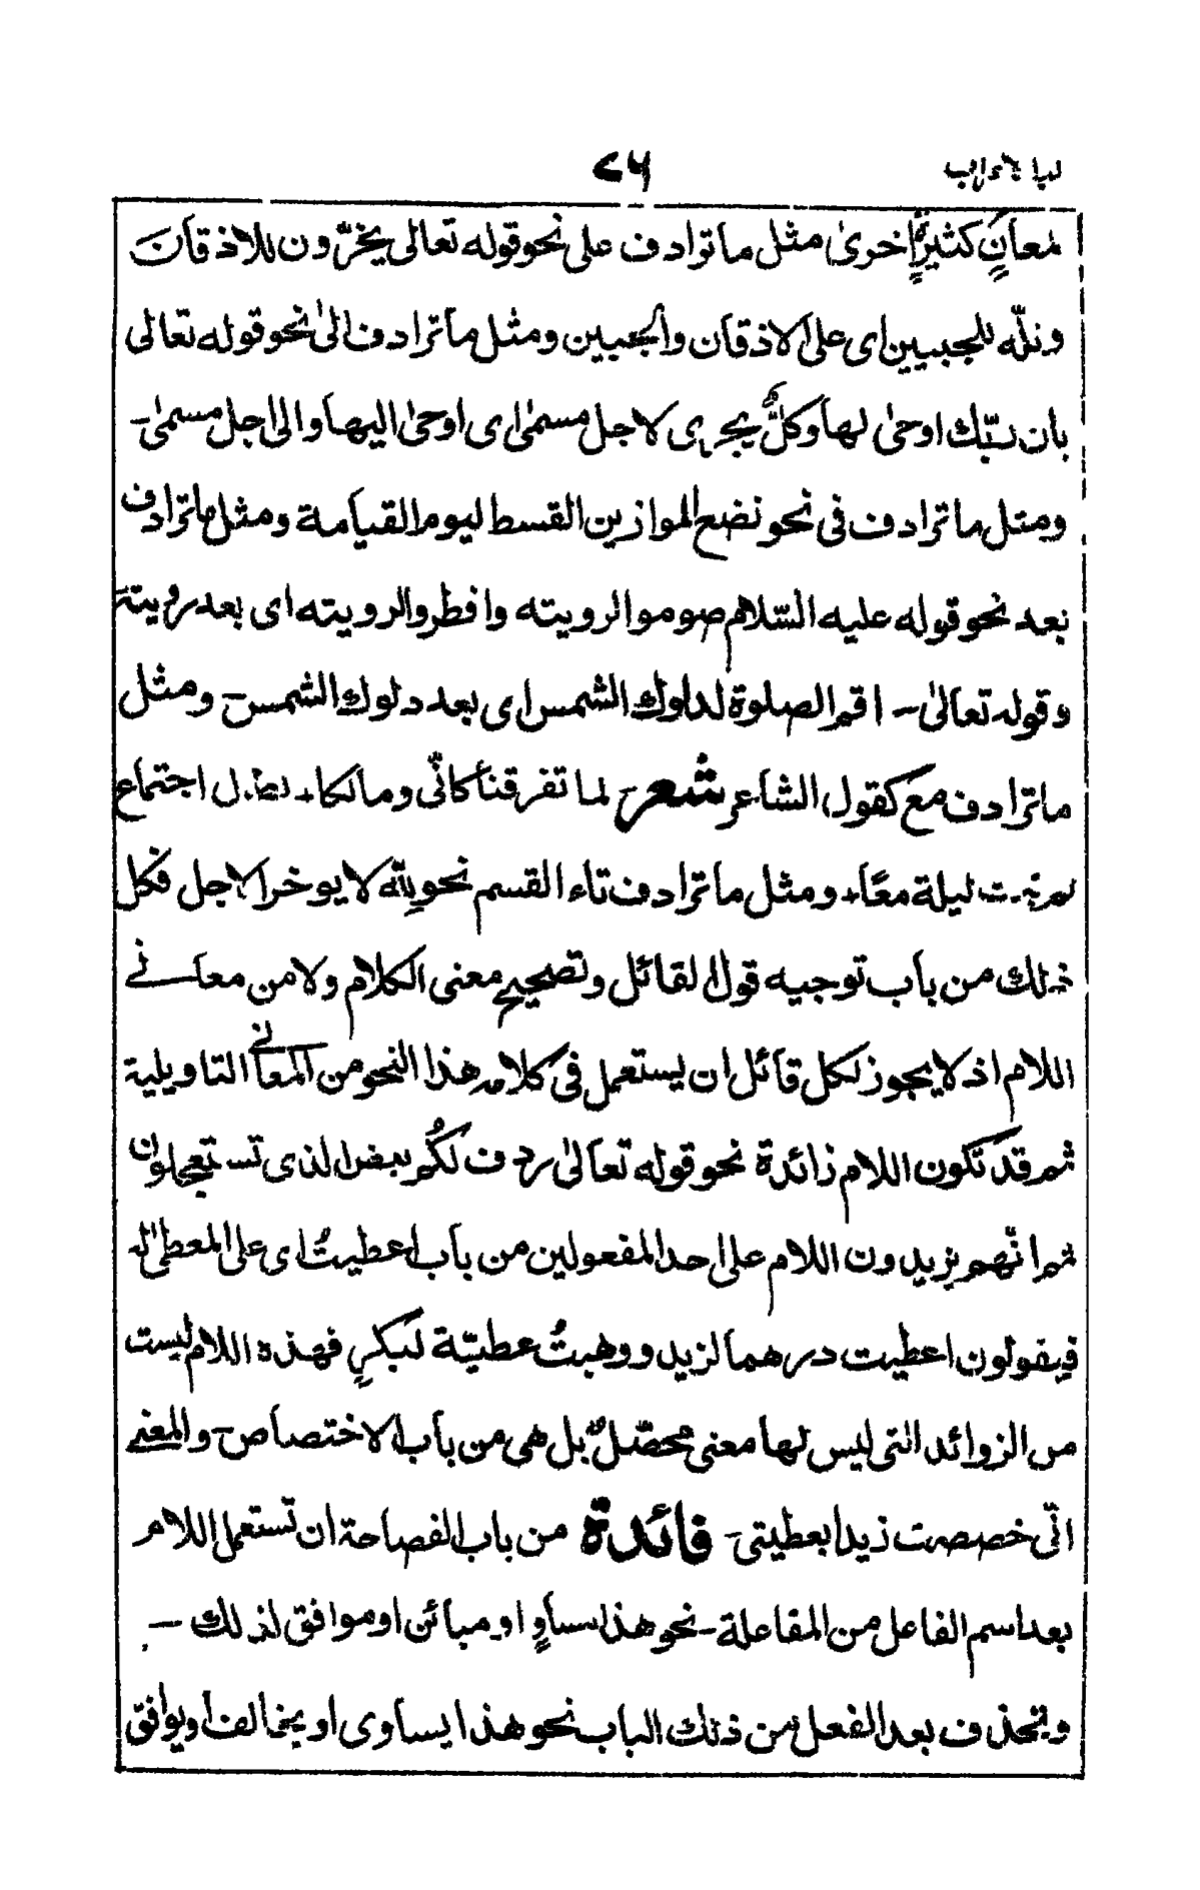 لباب الاعراب ٧٦
لمعانٍ كثيرةٍ اُخرىٰ مثل ما ترادف على نحو قوله تعالى يخرّون للاذقان
وتلّه للجبين اى على الاذقان والجبين ومثل ما ترادف الىٰ نحو قوله تعالى
بان ربّك اوحىٰ لها وكلٌّ يجرى لاجل مسمىٰ اى اوحىٰ اليها والى اجل مسمىٰ۔
ومثل ما ترادف فى نحو نضع الموازين القسط ليوم القيامة ومثل ما ترادف
بعد نحو قوله عليه السّلام صوموا لرويته وافطروا لرويته اى بعد رويته
وقوله تعالىٰ۔ اقم الصلوة لدلوك الشمس اى بعد دلوك الشمس۔ ومثل
ما ترادف مع كقول الشاعر شعر۔ لما تفرقنا كانّى ومالكا۔ لطول اجتماع
لم نبت ليلة معًا۔ ومثل ما ترادف تاء القسم نحو لِلّه لا يوخر الاجل فكل
ذلك من باب توجيه قول القائل وتصحيح معنى الكلام ولا من معانے
اللام اذ لا يجوز لكل قائل ان يستعمل فى كلامه هذا النحو من المعانے التاويلية
ثم قد تكون اللام زائدة نحو قوله تعالىٰ ردف لكُم بعض الذى تستعجلون
ثم انّهم يزيدون اللام على احد المفعولين من باب اعطيتُ اى على المعطىٰ له
فيقولون اعطيت درهما لزيد ووهبتُ عطيّة لبكرٍ فهذه اللام ليست
من الزوائد التى ليس لها معنى محصّلٌ بل هى من باب الاختصاص۔ والمعنے
انّى خصصت زيدا بعطيتى۔ فائدة من باب الفصاحة ان تستعمل اللام
بعد اسم الفاعل من المفاعلة۔ نحو هذا مساوٍ او مبائن او موافق لذلك۔
وتحذف بعد الفعل من ذلك الباب نحو هذا يساوى او يخالف او يوافق